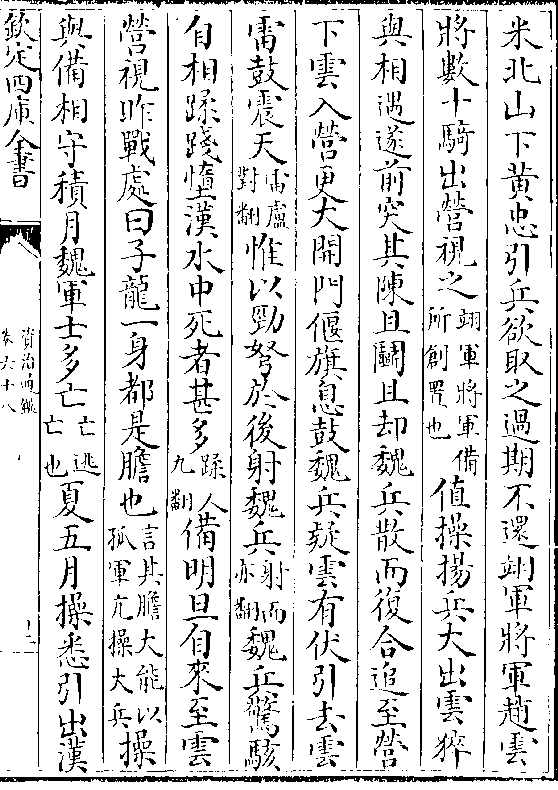 米北山下黄忠引兵欲取之過期不還翊軍將軍趙雲
將數十騎出營視之翊軍將軍備所創置也值操揚兵大出雲猝
與相遇遂前突其陳且鬬且却魏兵散而復合追至營
下雲入營更大開門偃旗息鼓魏兵疑雲有伏引去雲
雷鼓震天雷盧對翻惟以勁弩於後射魏兵射而亦翻魏兵驚駭
自相蹂踐墮漢水中死者甚多蹂人九翻備明旦自來至雲
營視昨戰處曰子龍一身都是膽也言其膽大能以孤軍亢操大兵操
與備相守積月魏軍士多亡亡逃亡也夏五月操悉引出漢
欽定四庫全書
資治通鑑
卷六十八